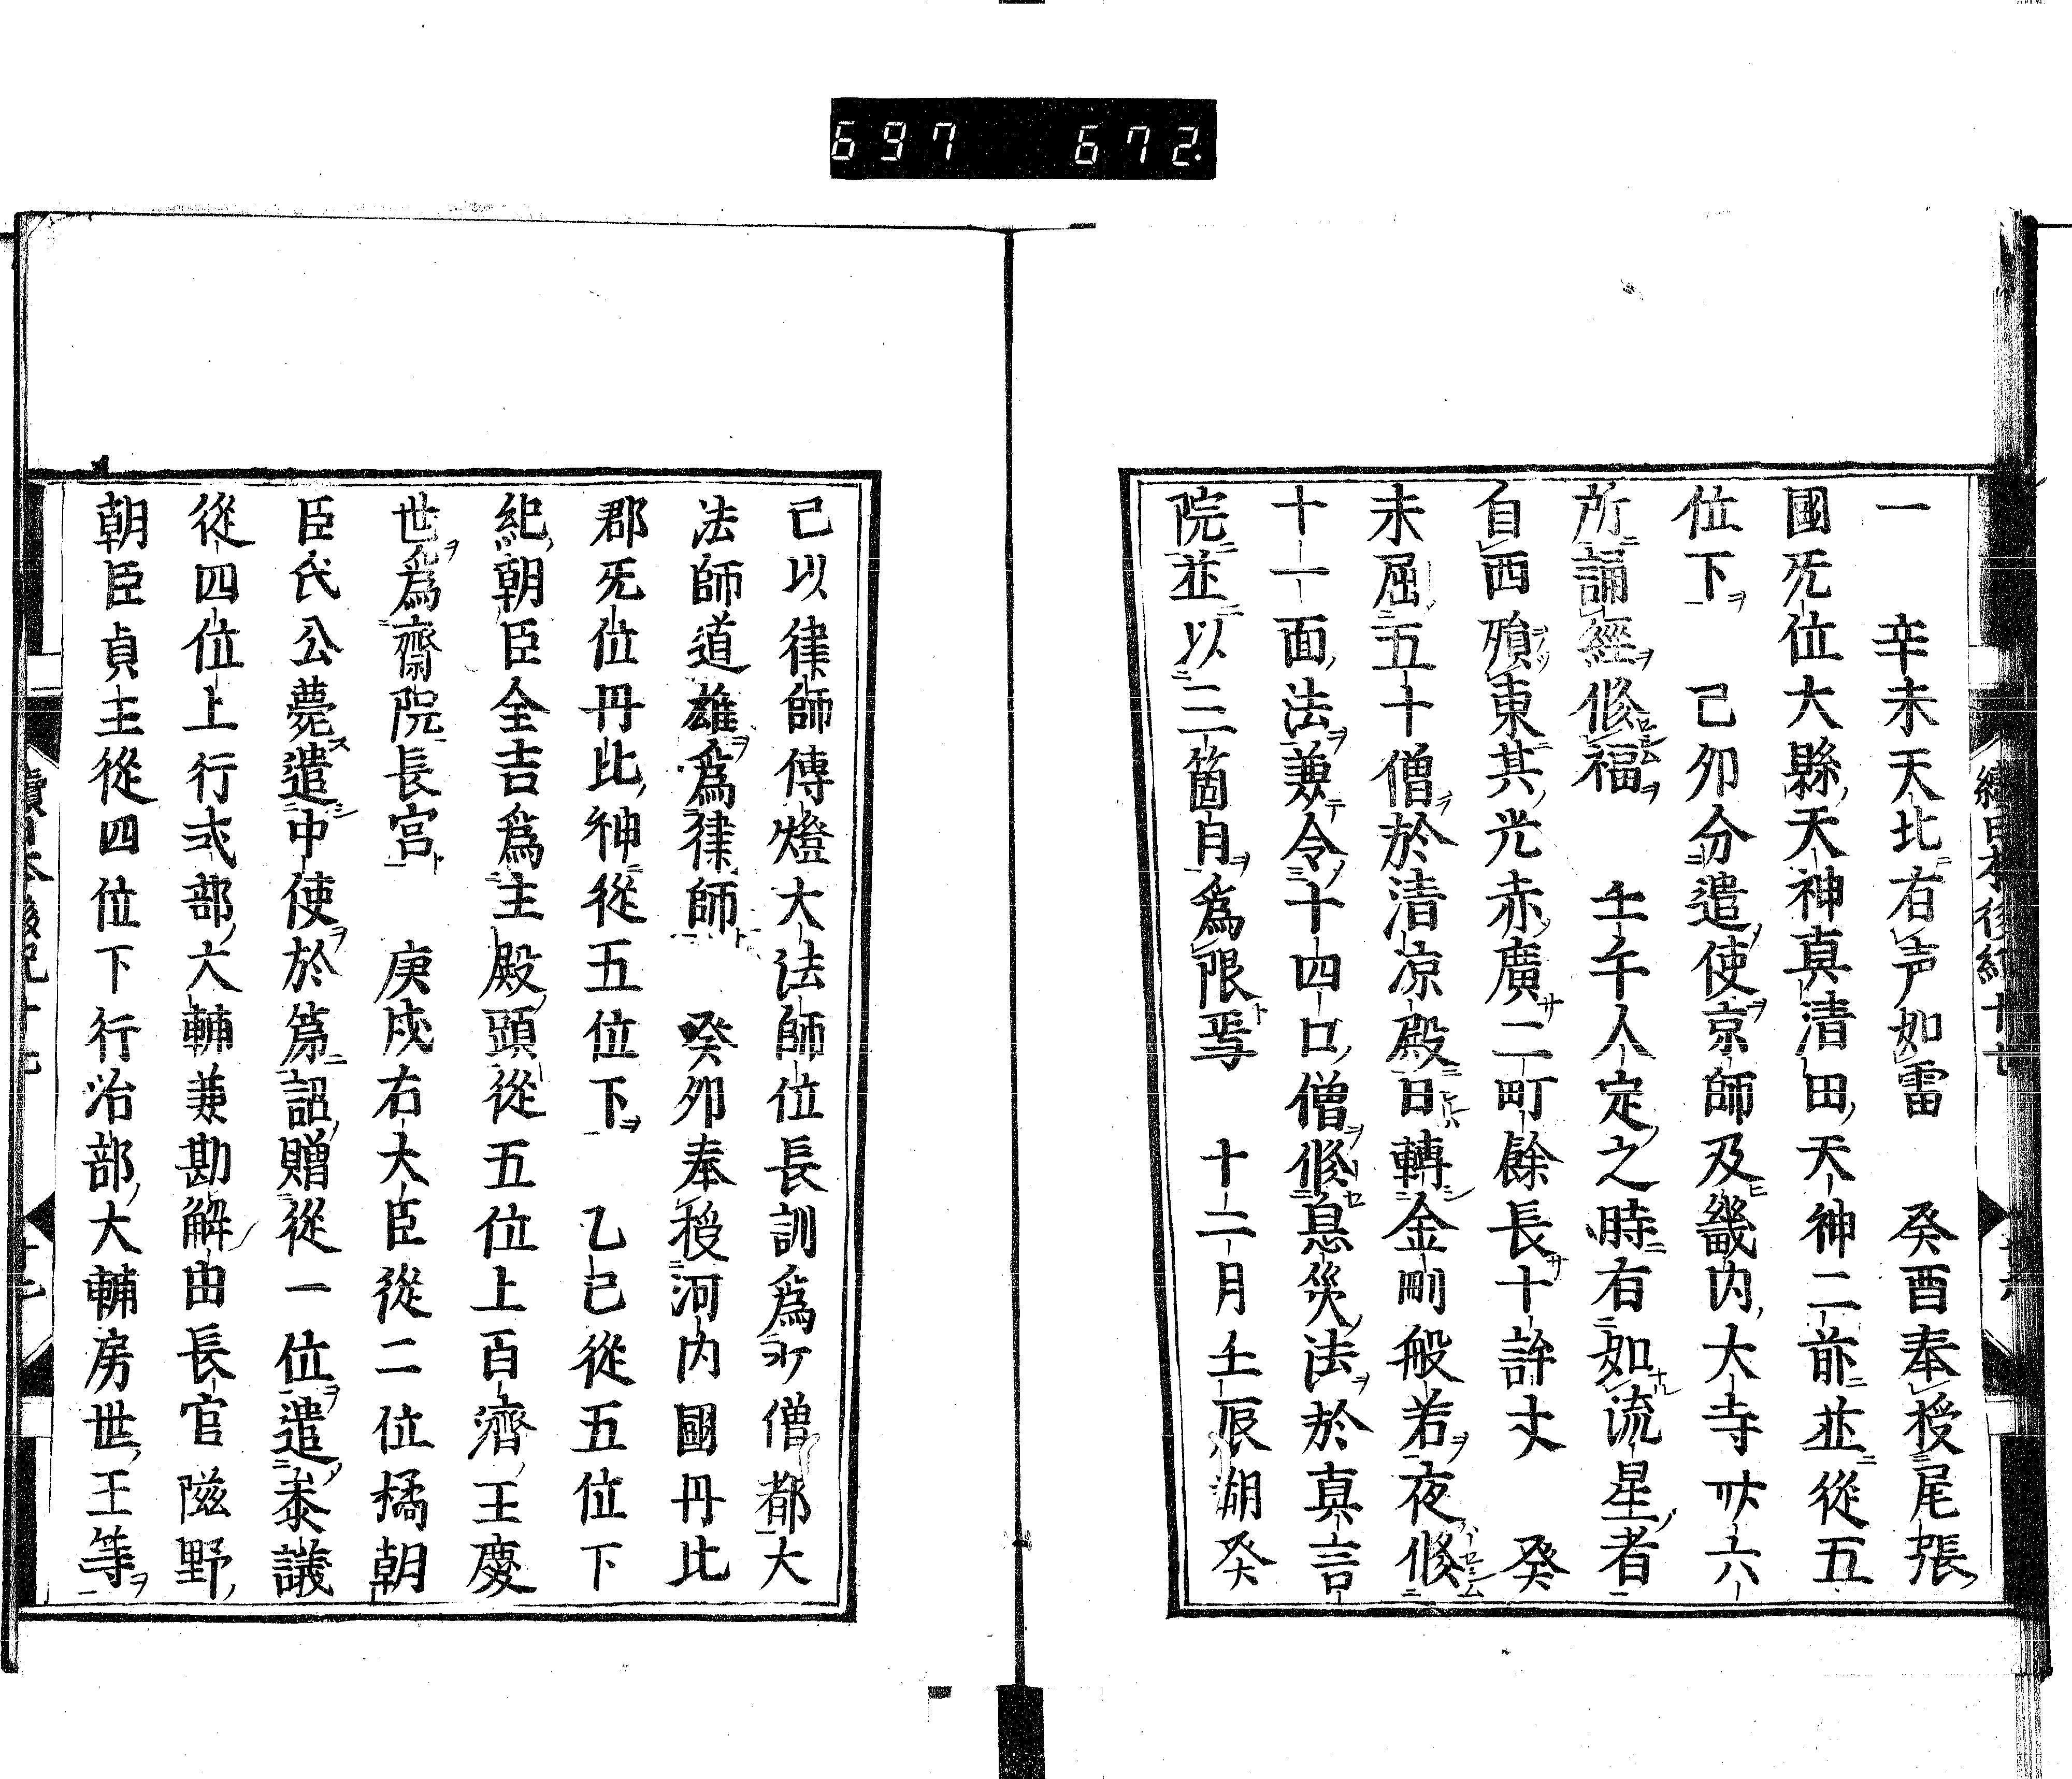 697 672
一　辛未天北有声如雷　癸酉奉授尾張
國旡位大縣天神真清田天神二前並從五
位下　己卯分遣使京師及畿内大寺卅六
所誦經修福　壬午人定之時有如流星者
自西殞東其光赤廣二町餘長十許丈　癸
未屈五十僧於清凉殿日轉金剛般若夜修
十一面法兼令十四口僧修息災法於真言
院並以三箇月爲限焉　十二月壬辰朔癸
續日本後紀十七
己以律師傳燈大法師位長訓爲少僧都大
法師道雄爲律師　癸卯奉授河内國丹比
郡旡位丹比神從五位下　乙巳從五位下
紀朝臣全吉爲主殿頭從五位上百濟王慶
世爲齋院長宮　庚戌右大臣從二位橘朝
臣氏公薨遣中使於第詔贈從一位遣參議
從四位上行式部大輔兼勘解由長官滋野
朝臣貞主從四位下行治部大輔房世王等
續日本後紀十七